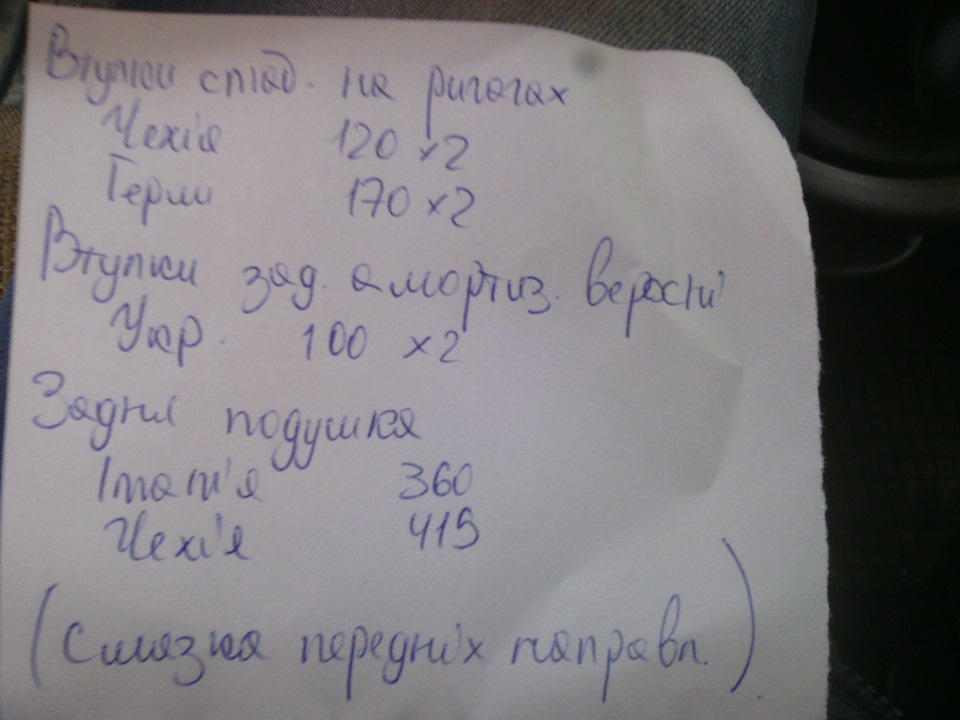 Втулки стаб. на ричагах
Чехія 120 ×2
Герм 170 ×2
Втулки зад. амортиз. верхні
Укр. 100 ×2
Задня подушка
Італія 360
Чехія 419
(Смазка передніх направл.)